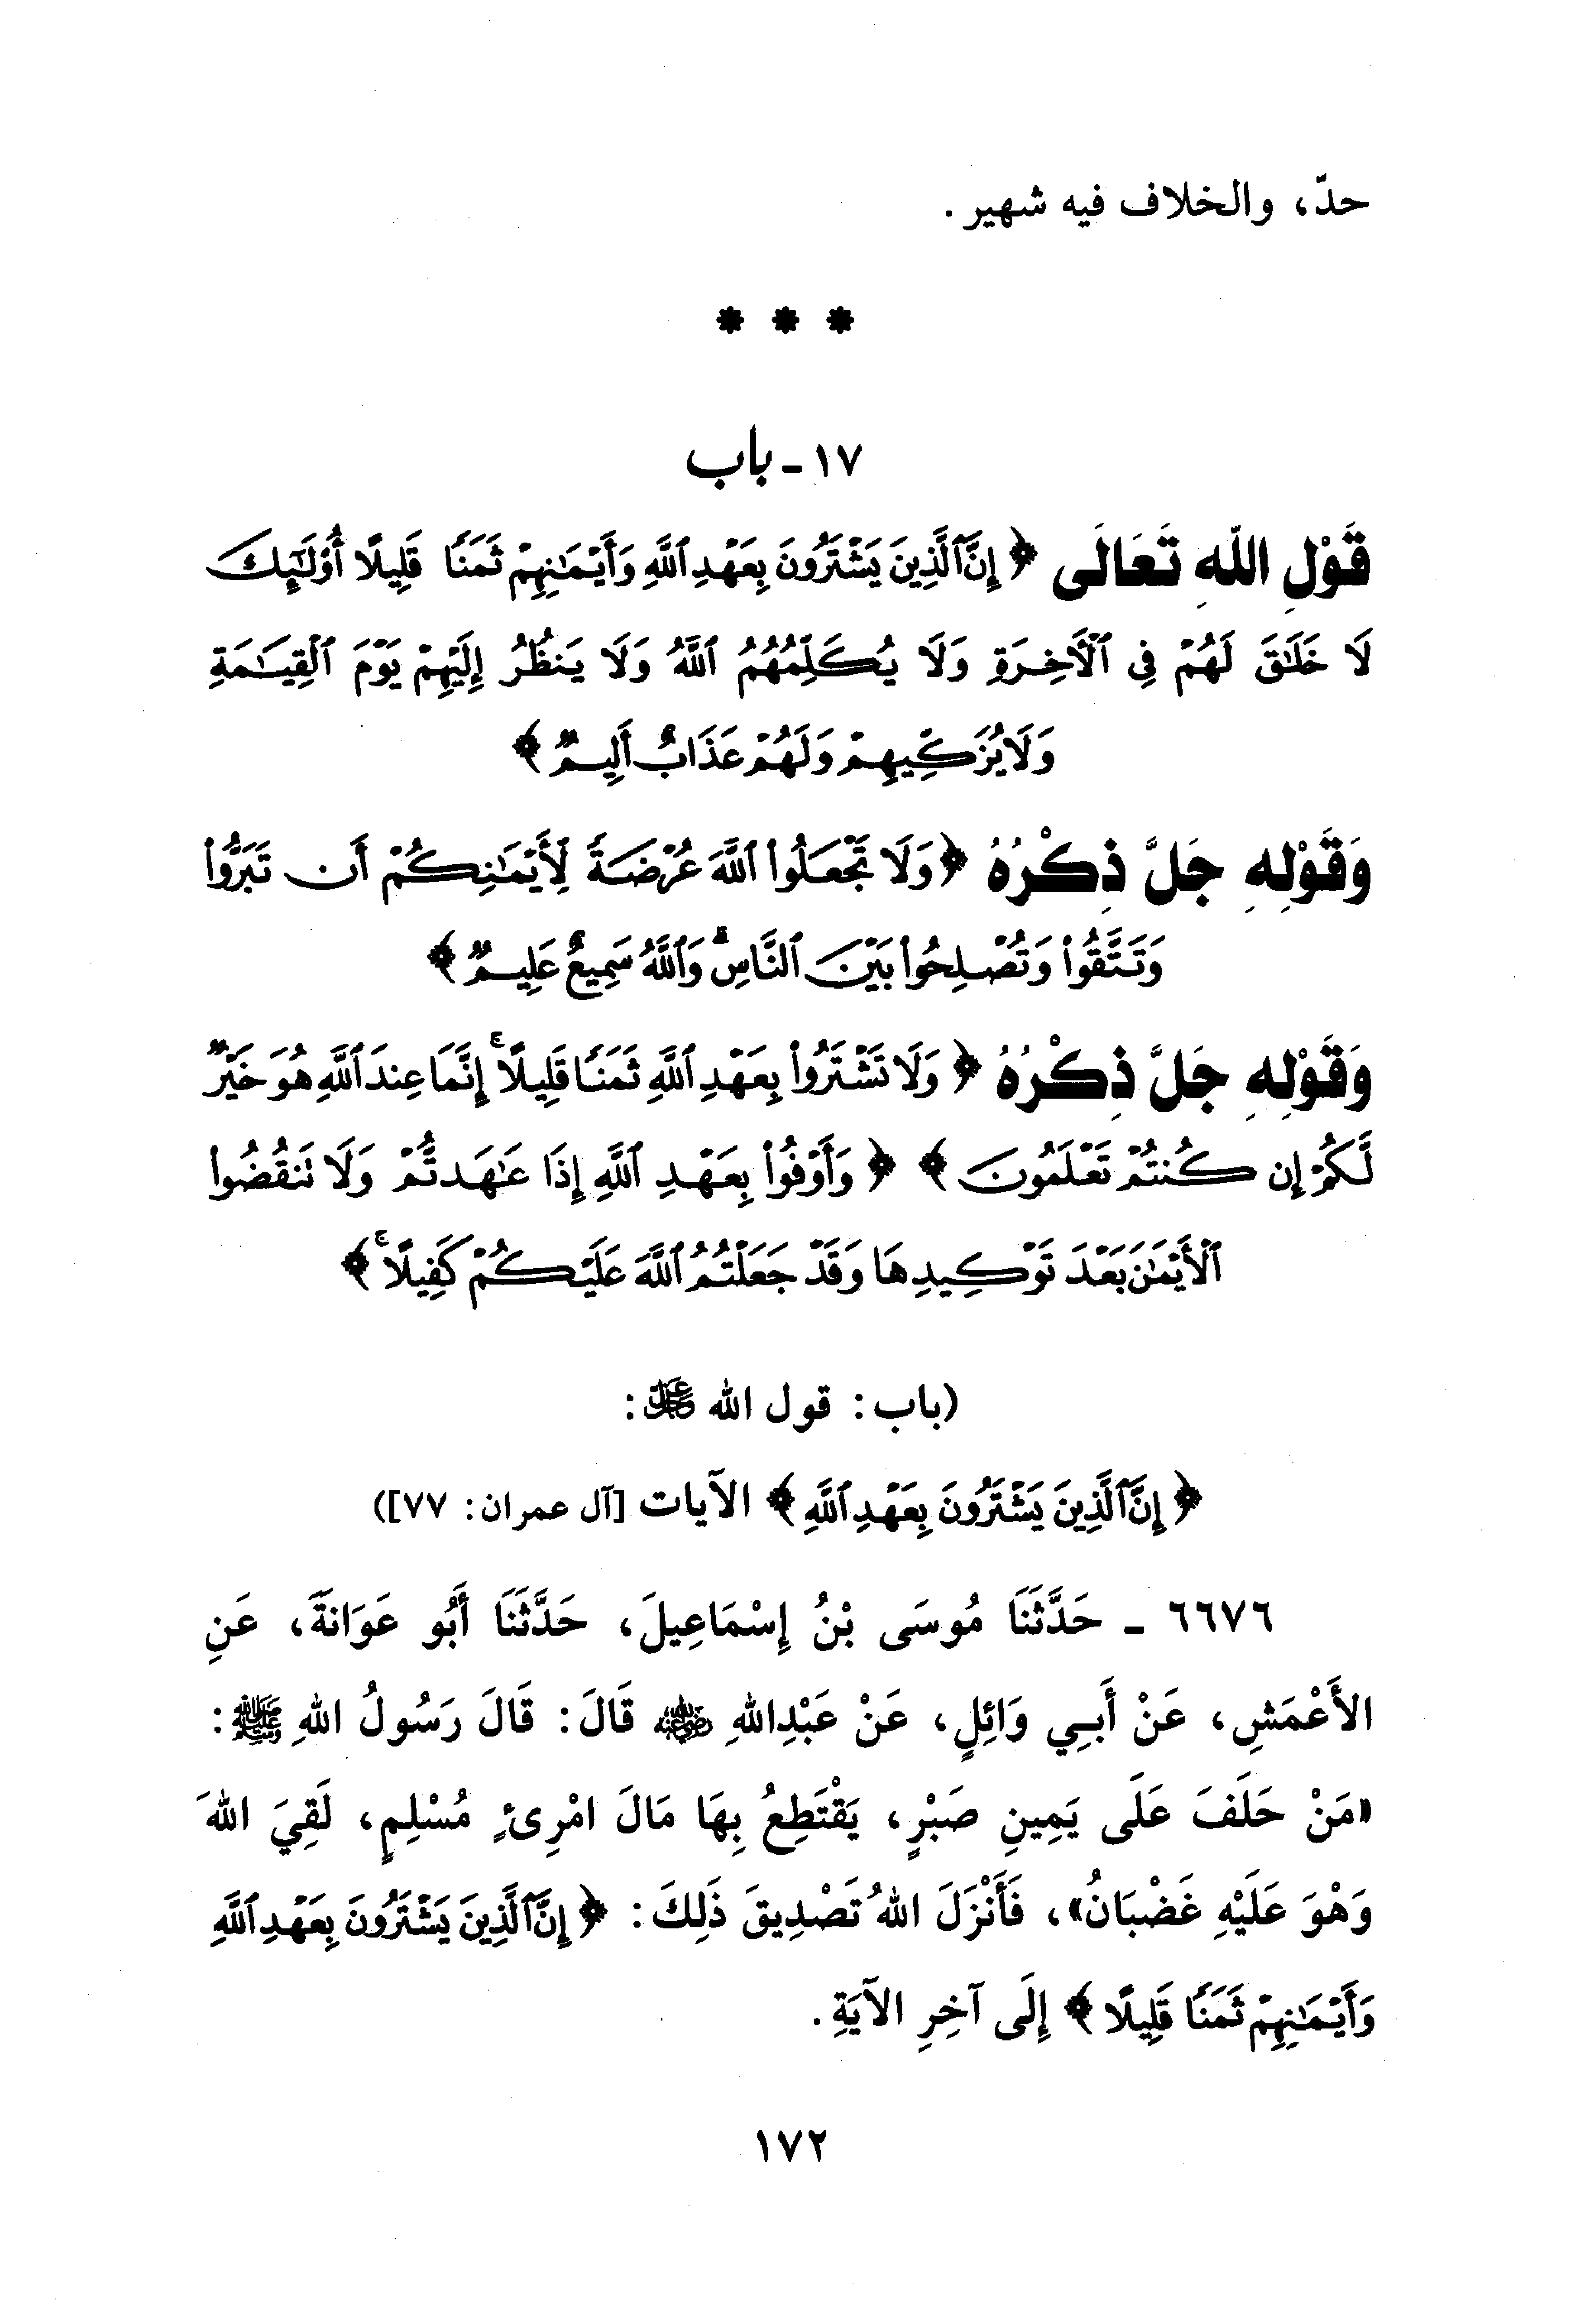 حدّ، والخلاف فيه شهير.
* * *
١٧ - باب
قَوْلِ اللهِ تَعَالَى ﴿إِنَّ ٱلَّذِينَ يَشْتَرُونَ بِعَهْدِ ٱللَّهِ وَأَيْمَٰنِهِمْ ثَمَنًا قَلِيلًا أُو۟لَٰٓئِكَ
لَا خَلَٰقَ لَهُمْ فِى ٱلْأَخِرَةِ وَلَا يُكَلِّمُهُمُ ٱللَّهُ وَلَا يَنظُرُ إِلَيْهِمْ يَوْمَ ٱلْقِيَٰمَةِ
وَلَا يُزَكِّيهِمْ وَلَهُمْ عَذَابٌ أَلِيمٌ﴾
وَقَوْلِهِ جَلَّ ذِكْرُهُ ﴿وَلَا تَجْعَلُوا۟ ٱللَّهَ عُرْضَةً لِّأَيْمَٰنِكُمْ أَن تَبَرُّوا۟
وَتَتَّقُوا۟ وَتُصْلِحُوا۟ بَيْنَ ٱلنَّاسِ ۗ وَٱللَّهُ سَمِيعٌ عَلِيمٌ﴾
وَقَوْلِهِ جَلَّ ذِكْرُهُ ﴿وَلَا تَشْتَرُوا۟ بِعَهْدِ ٱللَّهِ ثَمَنًا قَلِيلًا ۚ إِنَّمَا عِندَ ٱللَّهِ هُوَ خَيْرٌ
لَّكُمْ إِن كُنتُمْ تَعْلَمُونَ﴾ ﴿وَأَوْفُوا۟ بِعَهْدِ ٱللَّهِ إِذَا عَٰهَدتُّمْ وَلَا تَنقُضُوا۟
ٱلْأَيْمَٰنَ بَعْدَ تَوْكِيدِهَا وَقَدْ جَعَلْتُمُ ٱللَّهَ عَلَيْكُمْ كَفِيلًا ۚ﴾
(باب: قول الله عَزَّ وَجَلَّ:
﴿إِنَّ ٱلَّذِينَ يَشْتَرُونَ بِعَهْدِ ٱللَّهِ﴾ الآيات [آل عمران: ٧٧])
٦٦٧٦ - حَدَّثَنَا مُوسَى بْنُ إِسْمَاعِيلَ، حَدَّثَنَا أَبُو عَوَانَةَ، عَنِ
الأَعْمَشِ، عَنْ أَبِي وَائِلٍ، عَنْ عَبْدِاللهِ رضي الله عنه قَالَ: قَالَ رَسُولُ اللهِ ﷺ:
«مَنْ حَلَفَ عَلَى يَمِينِ صَبْرٍ، يَقْتَطِعُ بِهَا مَالَ امْرِئٍ مُسْلِمٍ، لَقِيَ اللهَ
وَهْوَ عَلَيْهِ غَضْبَانُ»، فَأَنْزَلَ اللهُ تَصْدِيقَ ذَلِكَ: ﴿إِنَّ ٱلَّذِينَ يَشْتَرُونَ بِعَهْدِ ٱللَّهِ
وَأَيْمَٰنِهِمْ ثَمَنًا قَلِيلًا﴾ إِلَى آخِرِ الآيَةِ.
١٧٢